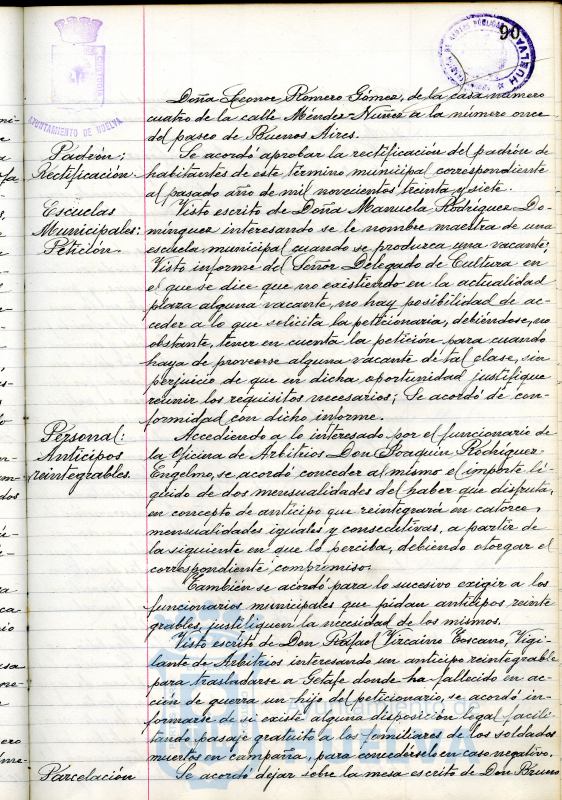 90
AYUNTAMIENTO DE HUELVA
HUELVA
Doña Leonor Romero Gómez, de la casa número
cuatro de la calle Méndez Nuñez a la número once
del paseo de Buenos Aires.
Padrón;
Rectificación.
Se acordó aprobar la rectificación del padrón de
habitantes de este término municipal correspondiente
al pasado año de mil novecientos treinta y siete.
Escuelas
Municipales:
Petición.
Visto escrito de Doña Manuela Rodríguez Do-
minguez interesando se le nombre maestra de una
escuela municipal cuando se produzca una vacante;
Visto informe del Señor Delegado de Cultura en
el que se dice que no existiendo en la actualidad
plaza alguna vacante, no hay posibilidad de ac-
ceder a lo que solicita la peticionaria, debiéndose, no
obstante, tener en cuenta la petición para cuando
haya de proveerse alguna vacante de tal clase, sin
perjuicio de que en dicha oportunidad justifique
reunir los requisitos necesarios; Se acordó de con-
formidad con dicho informe.
Personal:
Anticipos
reintegrables.
Accediendo a lo interesado por el funcionario de
la Oficina de Arbitrios Don Joaquin Rodriguez
Engelmo, se acordó conceder al mismo el importe lí-
quido de dos mensualidades del haber que disfruta,
en concepto de anticipo que reintegrará en catorce
mensualidades iguales y consecutivas, a partir de
la siguiente en que lo perciba, debiendo otorgar el
correspondiente compromiso.
También se acordó para lo sucesivo exigir a los
funcionarios municipales que pidan anticipos reinte
grables, justifiquen la necesidad de los mismos.
Visto escrito de Don Rafael Vizcaino Toscano, Vigi-
lante de Arbitrios interesando un anticipo reintegrable
para trasladarse a Getafe donde ha fallecido en ac-
ción de guerra un hijo del peticionario, se acordó in-
formarse de si existe alguna disposición legal facili-
tando pasaje gratuito a los familiares de los soldados
muertos en campaña, para concedérselo en caso negativo.
Parcelación
Se acordó dejar sobre la mesa escrito de Don Bruno
Ayuntamiento de